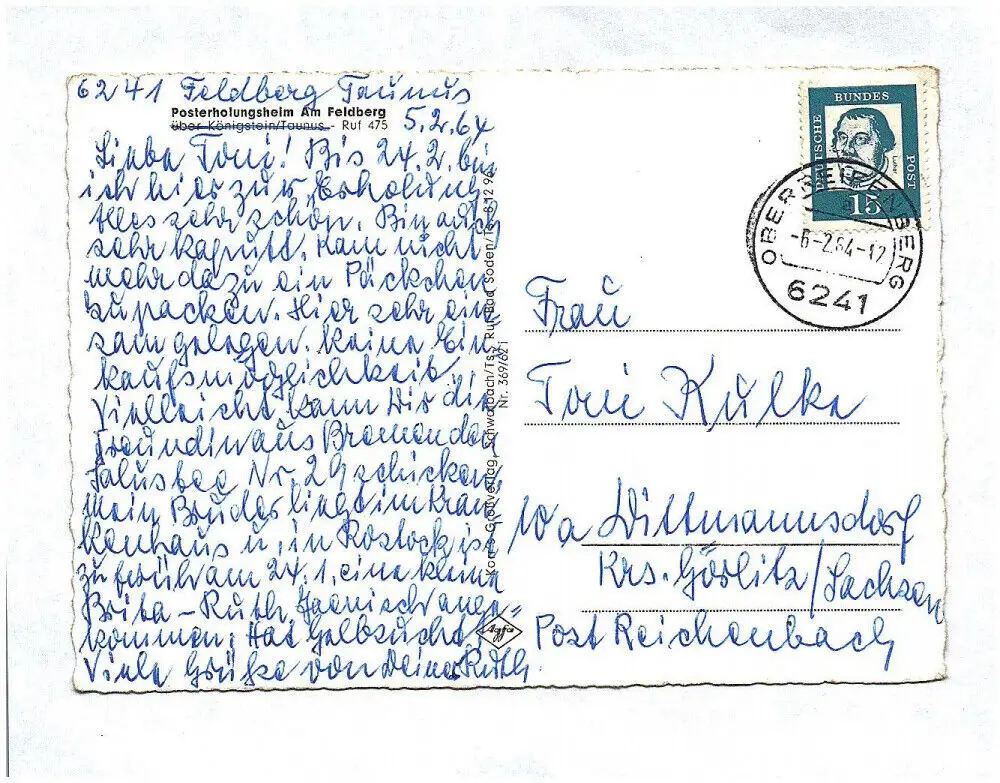 6241 Feldberg Taunus
Posterholungsheim Am Feldberg
über Königstein/Taunus - Ruf 475
5.2.64
Liebe Toni! Bis 24.2. bin
ich hier zur Erholung
Alles sehr schön. Bin auch
sehr kaputt. Kam nicht
mehr dazu ein Päckchen
zu packen. Hier sehr ein
sam gelegen. Keine Ein
kaufsmöglichkeit.
Vielleicht kann Dir die
Freundin aus Bremen den
Salustee Nr. 29 schicken.
Mein Bruder liegt im Kran
kenhaus u. in Rostock ist
zu früh am 24.1. eine kleine
Brita-Ruth Haenisch ange=
kommen. Hat Gelbsucht!
Viele Grüße von Deiner Ruth
Nr. 369/62 i
Agfa
DEUTSCHE BUNDESPOST
15
OBERREIFENBERG
-6-2.64-17
6241
Frau
Toni Kulke
10a Dittmannsdorf
Krs. Görlitz/Sachsen
Post Reichenbach